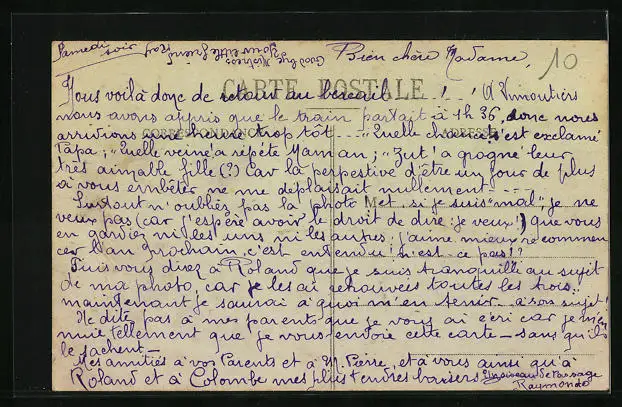 Samedi soir
Good bye Mistress
your little friend
Ray
Bien chère Madame,
10
CARTE POSTALE
CORRESPONDANCE
ADRESSE
Nous voilà donc de retour au bercail ! ! A Vimoutiers
nous avons appris que le train partait à 1h 36, donc nous
arrivions une heure trop tôt ... "Quelle chance" s'est exclamé
Papa ; "Quelle veine" a répété Maman ; "Zut" a grogné leur
très aimable fille (?) Car la perpestive d'être un jour de plus
à vous embêter ne me déplaisait nullement ...
Surtout n'oubliez pas la photo et si je suis "mal", je ne
veux pas (car j'espère avoir le droit de dire : je veux !) que vous
en gardiez ni les uns ni les autres : j'aime mieux recommen
cer l'an prochain, c'est entendu n'est-ce pas !?
Puis vous direz à Roland que je suis tranquille au sujet
de ma photo, car je les ai retrouvées toutes les trois :
maintenant je saurai à quoi m'en tenir à son sujet !
Ne dite pas à mes parents que je vous ai écri car je m'en
nuie tellement que je vous envoie cette carte sans qu'ils
le sachent
Mes amitiés à vos Parents et à M. Pierre, et à vous ainsi qu'à
Roland et à Colombe mes plus tendres baisers Un oiseau de Passage
Raymonde